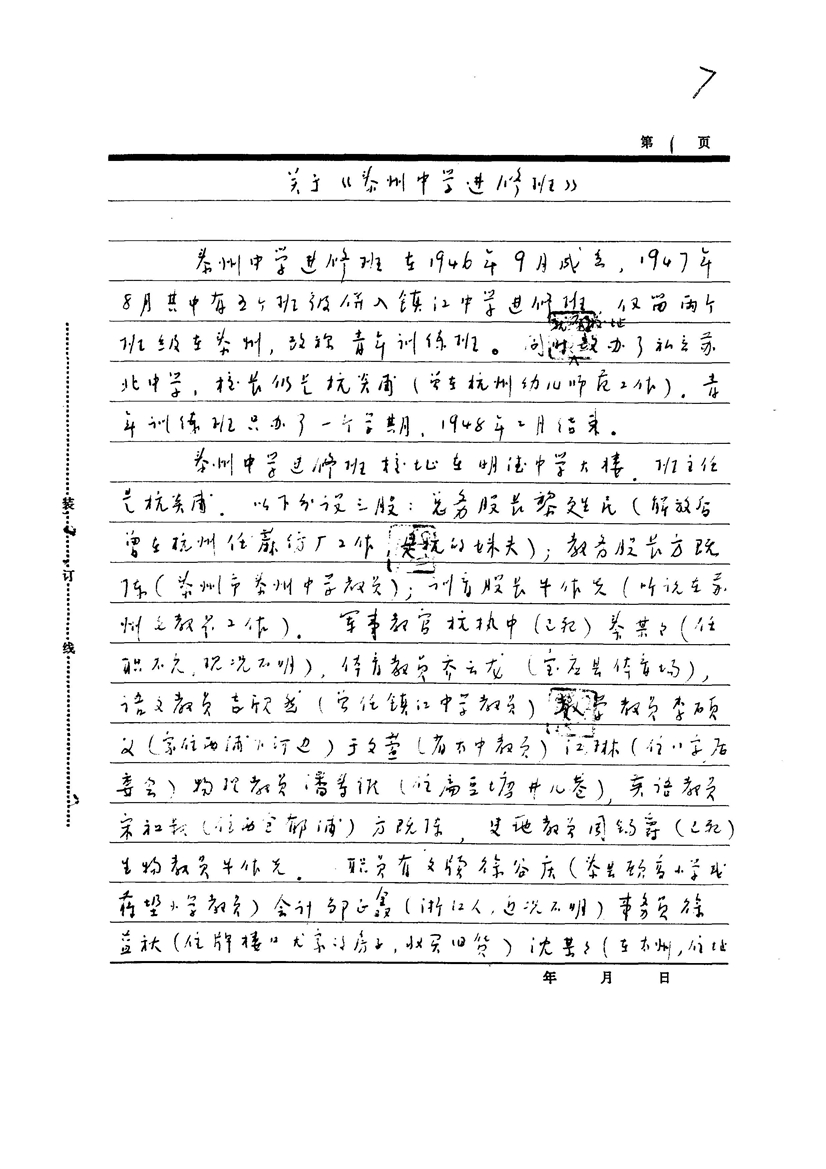 7
第1页
关于《泰州中学进修班》
泰州中学进修班在1946年9月成立，1947年
8月其中有五个班级併入镇江中学进修班，仅留两个
班级在泰州，改称青年训练班。同时 办了私立苏
北中学，校长仍是杭炎甫（曾在杭州幼儿师范工作）。青
年训练班只办了一个学期，1948年2月结束。
泰州中学进修班校址在明德中学大楼，班主任
是杭炎甫。以下分设三股：总务股长黎 民（解放后
曾在杭州任 厂工作， 杭的妹夫）；教务股长方既
陈（泰州市泰州中学教员）；训育股长牛作先（听说在苏
州文教局工作）。军事教官杭执中（已死）蔡某某（任
职不久，现况不明），体育教员乔云龙（宝应县体育场），
语文教员吉欣然（曾任镇江中学教员）数学教员李硕
父（家住西浦 河边）于文萱（省太中教员）江琳（住八字居
委会）物理教员潘 （住扁豆塘井儿巷），英语教员
宋 （住西仓郁浦）方既陈，史地教员周锡爵（已死）
生物教员牛作先。职员有文牍徐谷庆（泰县 小学或
蒋垛小学教员）会计邹正鑫（浙江人，近况不明）事务员徐
益秋（住牌楼口尤家 房子，收买旧货）沈某某（在 州，住址
年 月 日
装订线